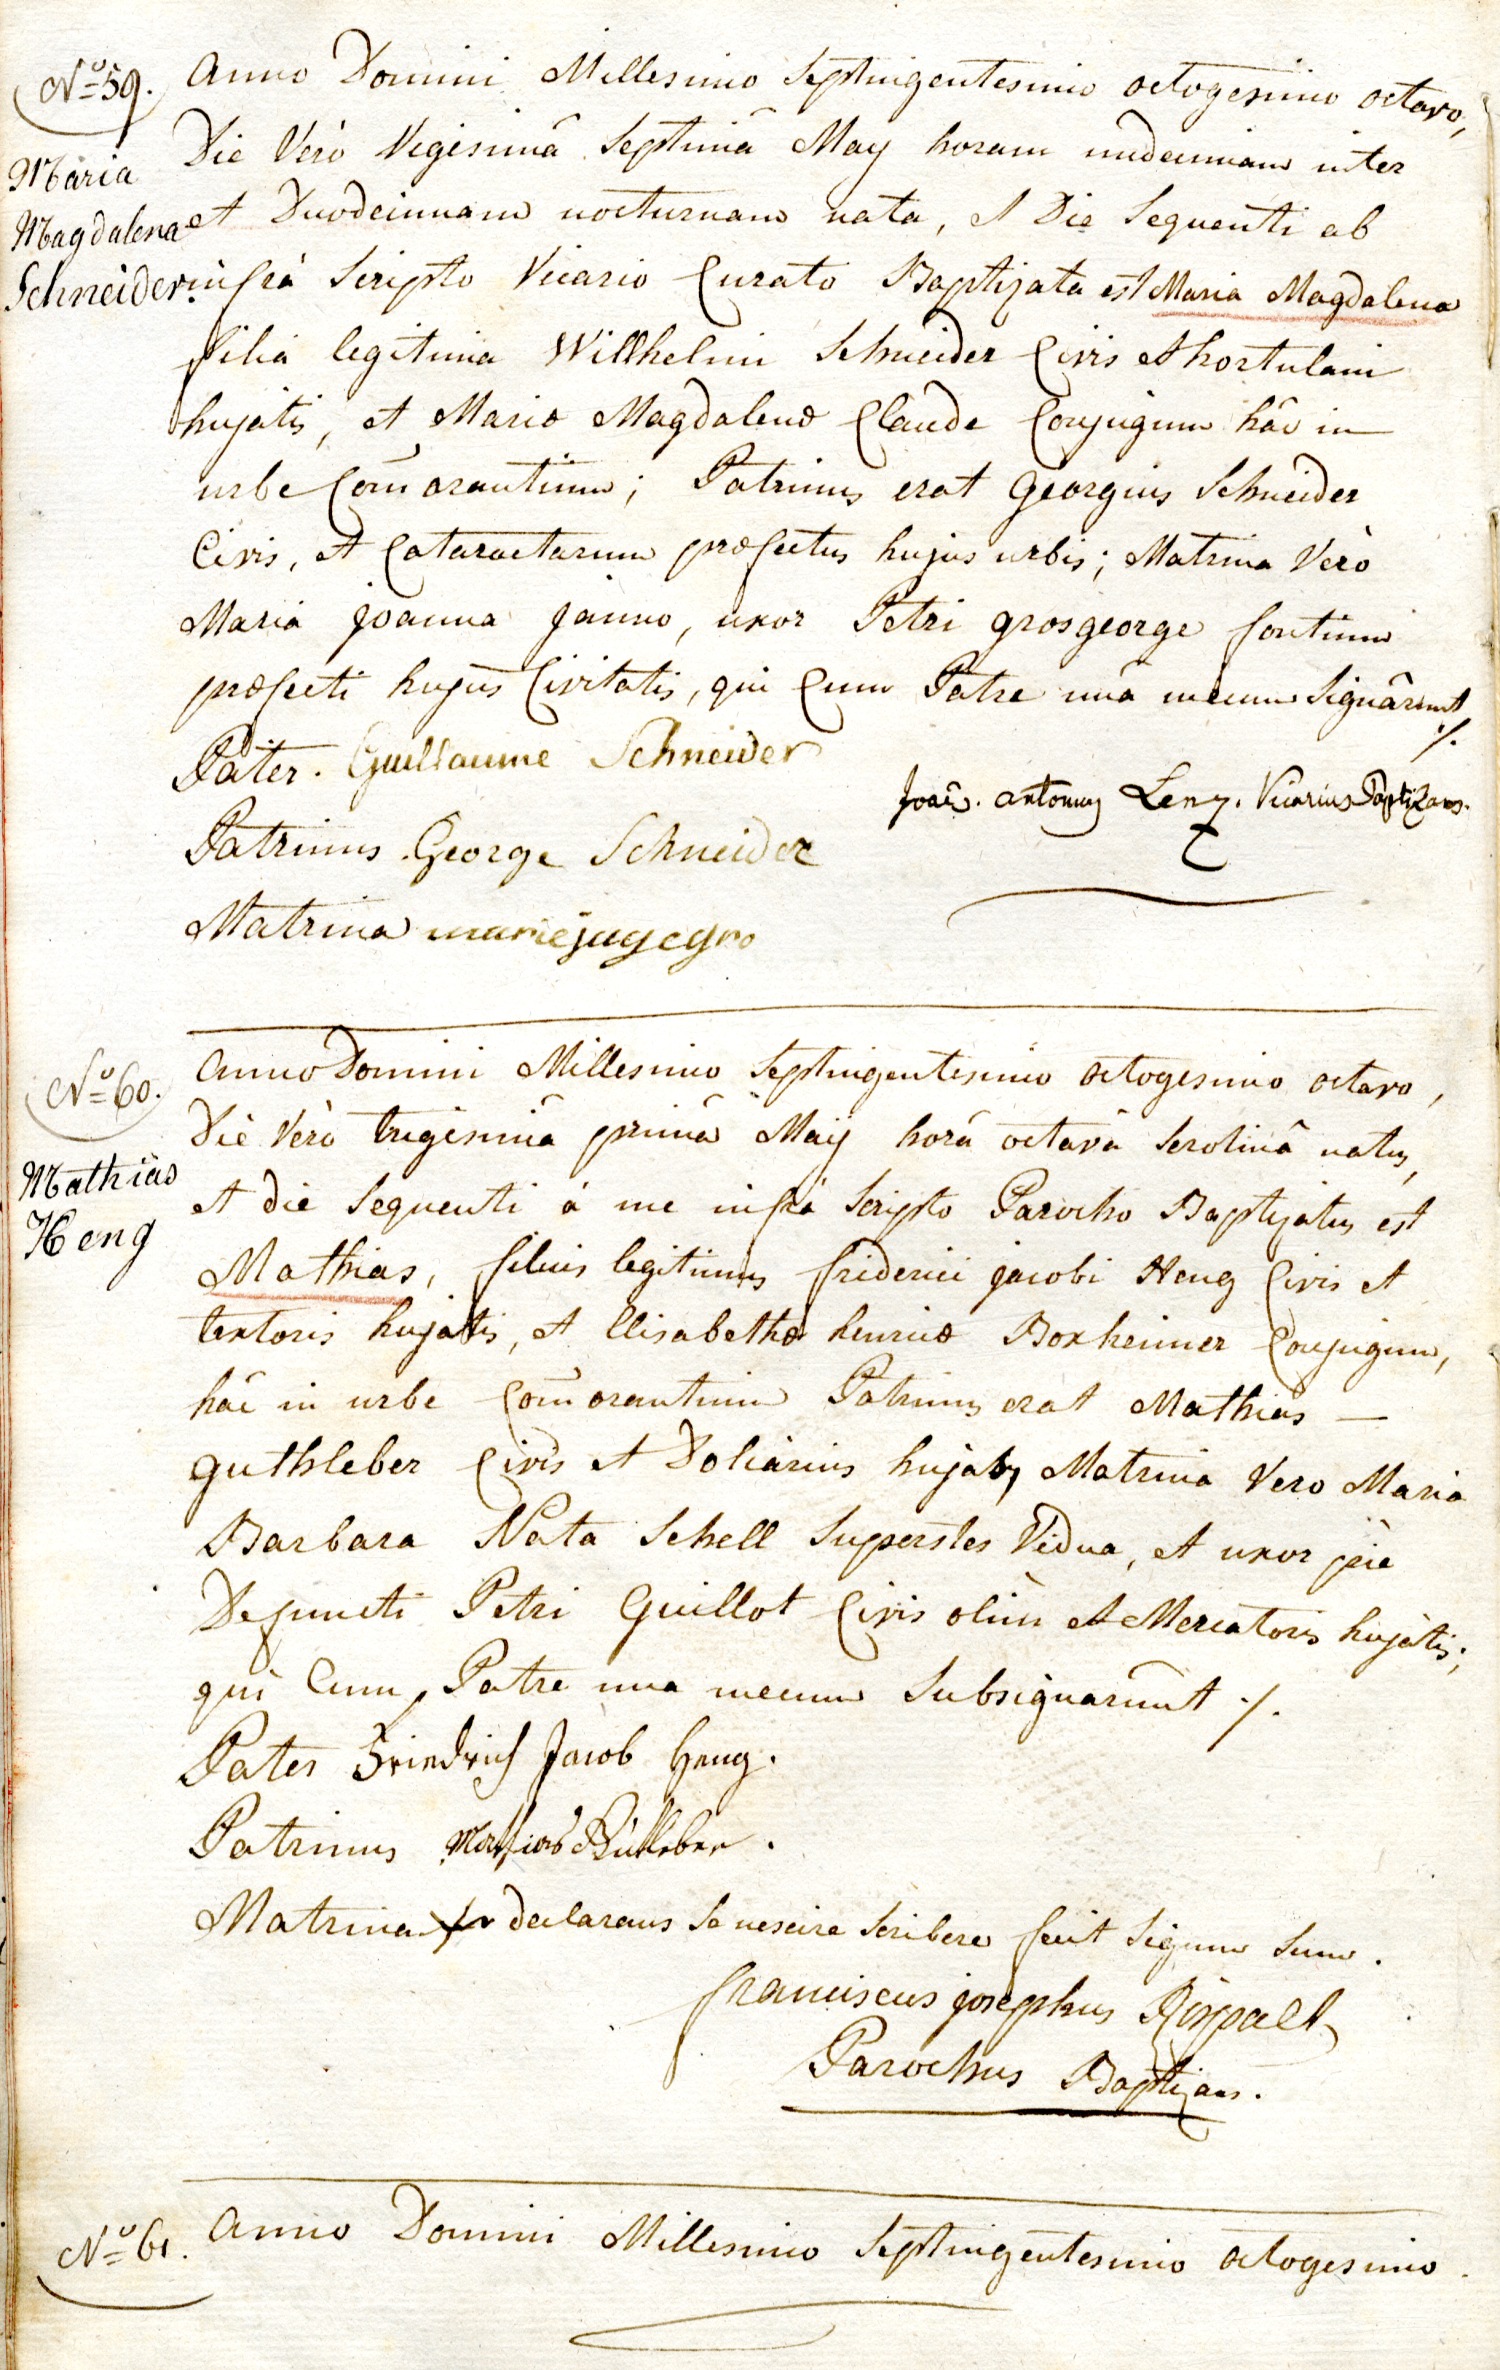 No 59.
Anno Domini Millesimo Septingentesimo octogesimo octavo,
Maria
Die Verò Vigesimâ Septimâ May horam undecimam inter
Magdalena
et Duodecimam nocturnam nata, et Die Sequenti ab
Schneider.
infrà Scripto Vicario Curato Baptizata est Maria Magdalena
filia legitima Willhelmi Schneider Civis et hortulani
hujatis, et Mariæ Magdalenæ Claude Conjugum hâc in
urbe Com̄orantium; Patrinus erat Georgius Schneider
Civis, et Cataractarum præfectus hujus urbis; Matrina Verò
Maria Joanna Janno, uxor Petri grosgeorge fontium
præfecti hujus Civitatis, qui Cum Patre unâ mecum Signârunt ./.
Pater. Guillaume Schneider
Joan̄. antonius Lenz. Vicarius Baptizans.
Patrinus George Schneider
Matrina marie
No 60.
Anno Domini Millesimo Septingentesimo octogesimo octavo,
Die Verò trigesimâ primâ Maij horâ octavâ Serotinâ natus,
Mathias
et die Sequenti à me infrà Scripto Parocho Baptizatus est
Heng
Mathias, filius legitimus friderici jacobi Heng Civis et
textoris hujatis, et Elisabethæ henricæ Boxheimer Conjugum,
hâc in urbe Com̄orantium Patrinus erat Mathias —
guthleber Civis et Doliarius hujatis, Matrina Vero Maria
Barbara Nata Schell Superstes Vidua, et uxor piè
Defuncti Petri Guillot Civis olim et Mercatoris hujatis;
qui Cum Patre una mecum Subsignarunt ./.
Pater Friedrich Jacob Heng.
Patrinus Mathias Gutleber.
Matrina declarans se nescire scribere fecit Signum Suum.
franciscus josephus Rispalt
Parochus Baptizans.
No 61.
Anno Domini Millesimo Septingentesimo octogesimo.